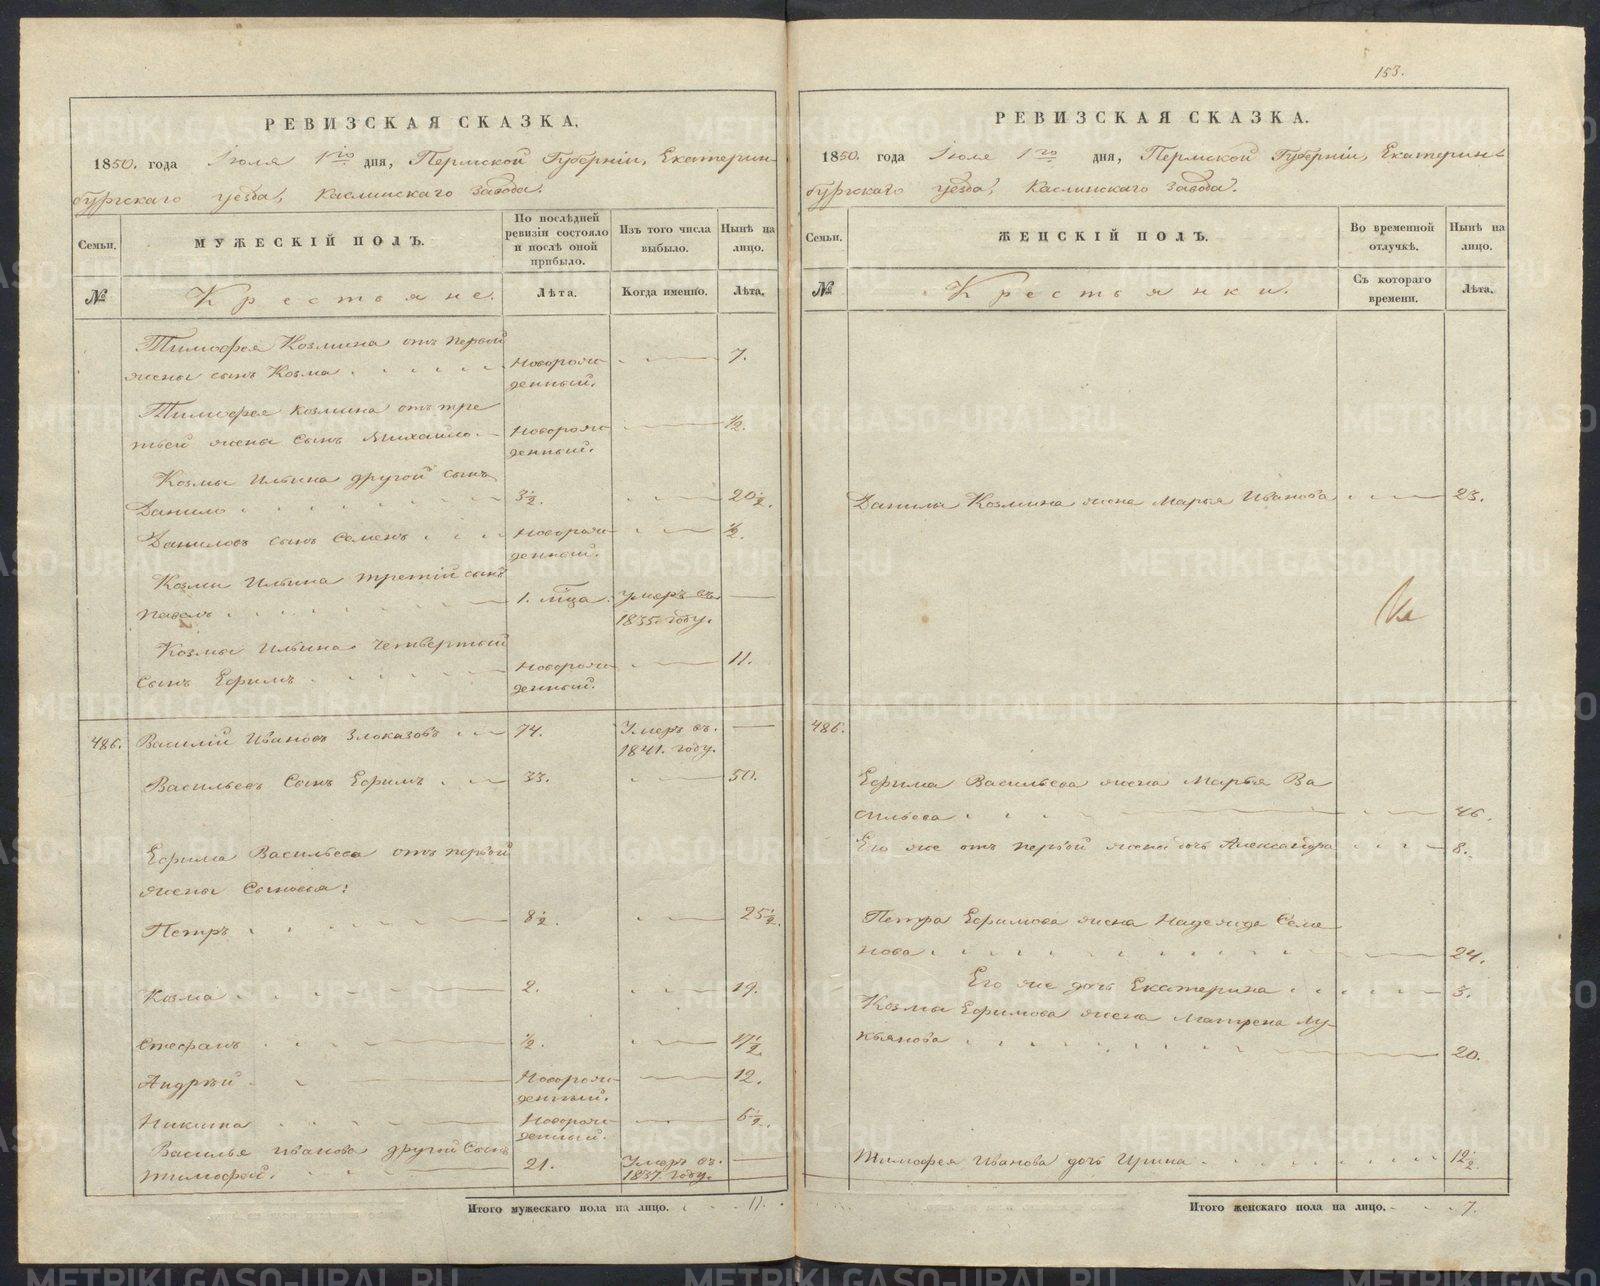 РЕВИЗСКАЯ СКАЗКА.
1850. года Іюля 1го дня, Пермской Губерніи, Екатерин-
бургскаго уезда, Каслинскаго завода.
Семьи.
МУЖЕСКІЙ ПОЛЪ.
По послѣдней
ревизіи состояло
и послѣ оной
прибыло.
Изъ того числа
выбыло.
Нынѣ на
лицо.
№
Крестьяне.
Лѣта.
Когда именно.
Лѣта.
Тимофея Козмина отъ первой
жены сынъ Козма Новорож- 7.
денный.
Тимофея Козмина отъ тре
тьей жены сынъ Михайло. Новорож- ½.
денный.
Козмы Ильина другой сынъ
Данило 3½. 20½.
Даниловъ сынъ Семенъ Новорож- ½.
денный.
Козмы Ильина третій сынъ
Павелъ 1. мца. Умеръ въ
1835 году.
Козмы Ильина четвертый
сынъ Ефимъ Новорож- 11.
денный.
486. Василій Ивановъ Злоказовъ 74. Умеръ въ
1841. году.
Васильевъ Сынъ Ефимъ 33. 50.
Ефима Васильева отъ первой
жены Сыновья:
Петръ 8½. 25½.
Козма 2. 19.
Стефанъ ½. 17½.
Андрей Новорож- 12.
денный.
Никита Новорож- 6½.
денный.
Василья Иванова другой Сынъ
Тимофей. 21. Умеръ въ
1837. году.
Итого мужескаго пола на лицо. 11.
153.
РЕВИЗСКАЯ СКАЗКА.
1850. года Іюля 1го дня, Пермской Губерніи, Екатерин-
бургскаго уезда, Каслинскаго завода.
Семьи.
ЖЕНСКІЙ ПОЛЪ.
Во временной
отлучкѣ.
Нынѣ на
лицо.
№
Крестьянки.
Съ котораго
времени.
Лѣта.
Данилы Козмина жена Марья Иванова 23.
486.
Ефима Васильева жена Марья Ва
сильева 46.
Его же отъ первой жены дочь Александра 8.
Петра Ефимова жена Надежда Семе
нова 24.
Его же дочь Екатерина 3.
Козмы Ефимова жена Матрена Лу-
кьянова 20.
Тимофея Иванова дочь Ирина 12½.
Итого женскаго пола на лицо. 7.
METRIKI.GASO-URAL.RU